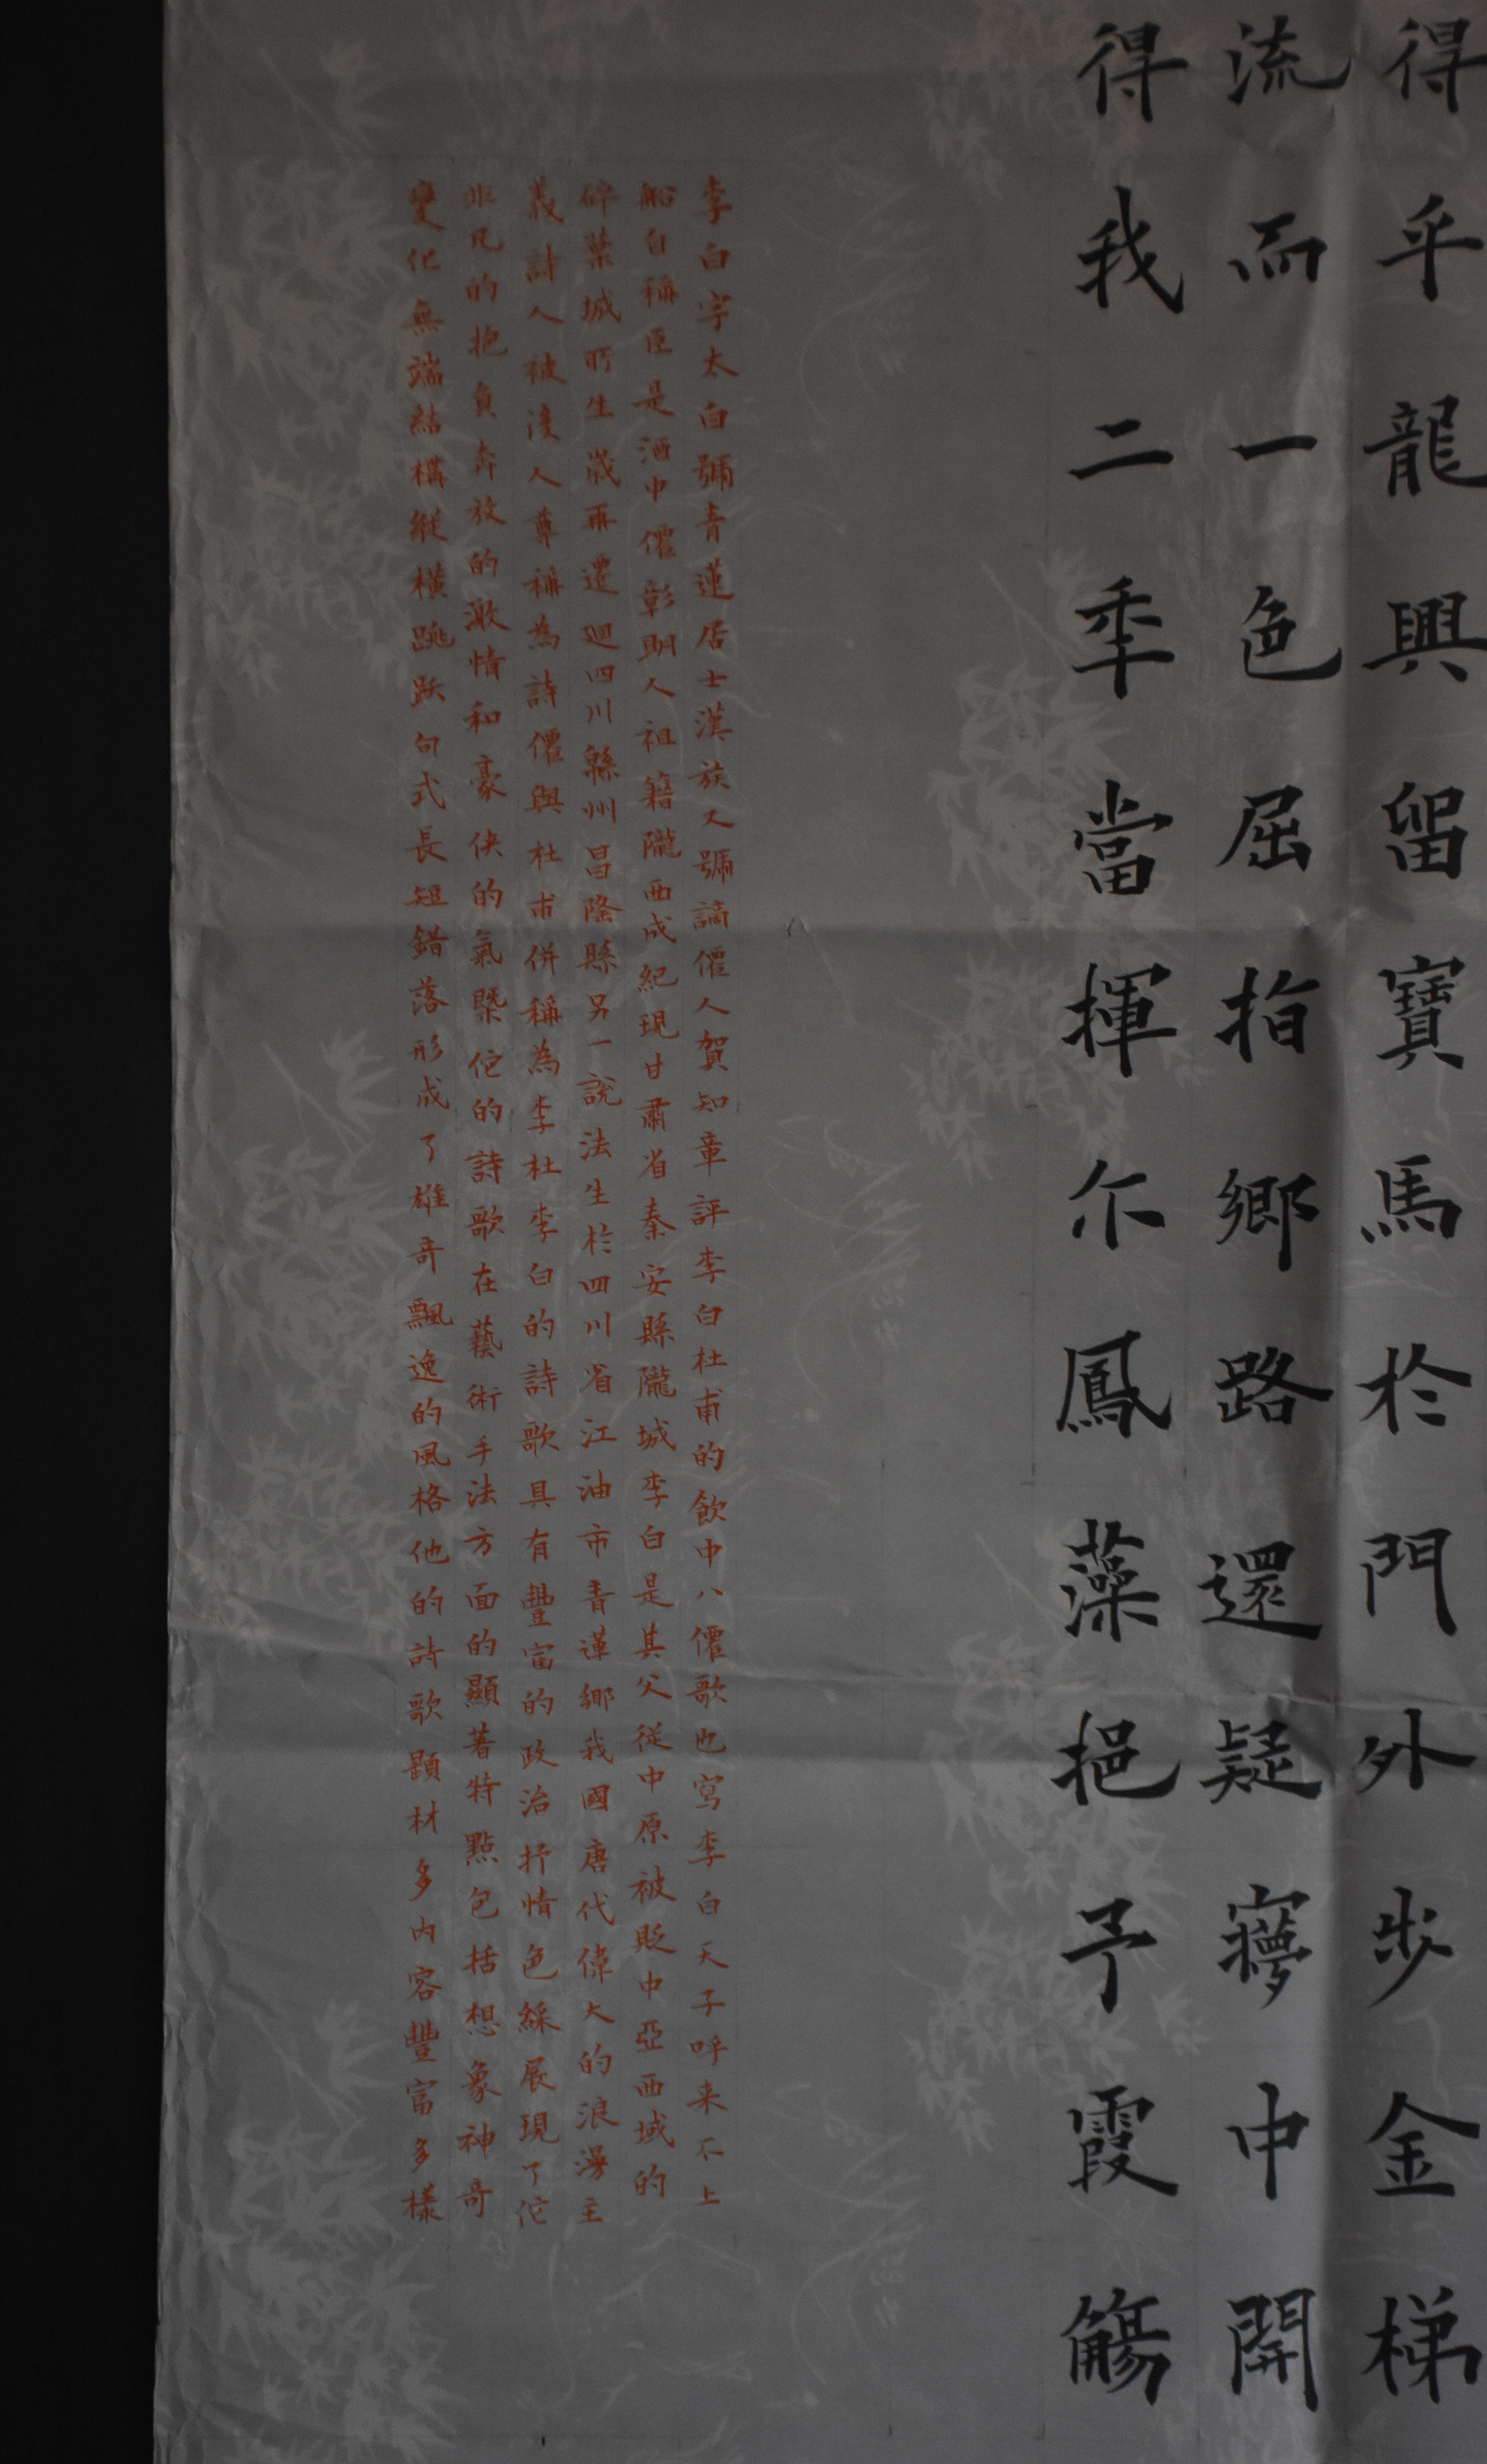 得乎龍興留寶馬於門外步金梯
流而一色屈指鄉路還疑夢中開
得我二季當揮尒鳳藻挹予霞觴
李白字太白號青蓮居士漢族又號謫僊人賀知章評李白杜甫的飲中八僊歌也寫李白天子呼来不上
船自稱臣是酒中僊彰明人祖籍隴西成紀現甘肅省秦安縣隴城李白是其父從中原被貶中亞西域的
碎葉城所生歲再遷迴四川緜州昌隆縣另一說法生於四川省江油市青蓮鄉我國唐代偉大的浪漫主
義詩人被後人尊稱為詩僊與杜甫併稱為李杜李白的詩歌具有豐富的政治抒情色綵展現了佗
非凡的抱負奔放的激情和豪俠的氣槩佗的詩歌在藝術手法方面的顯著特點包括想象神奇
變化無端結構縱橫跳跃句式長短錯落形成了雄奇飄逸的風格他的詩歌題材多内容豐富多樣